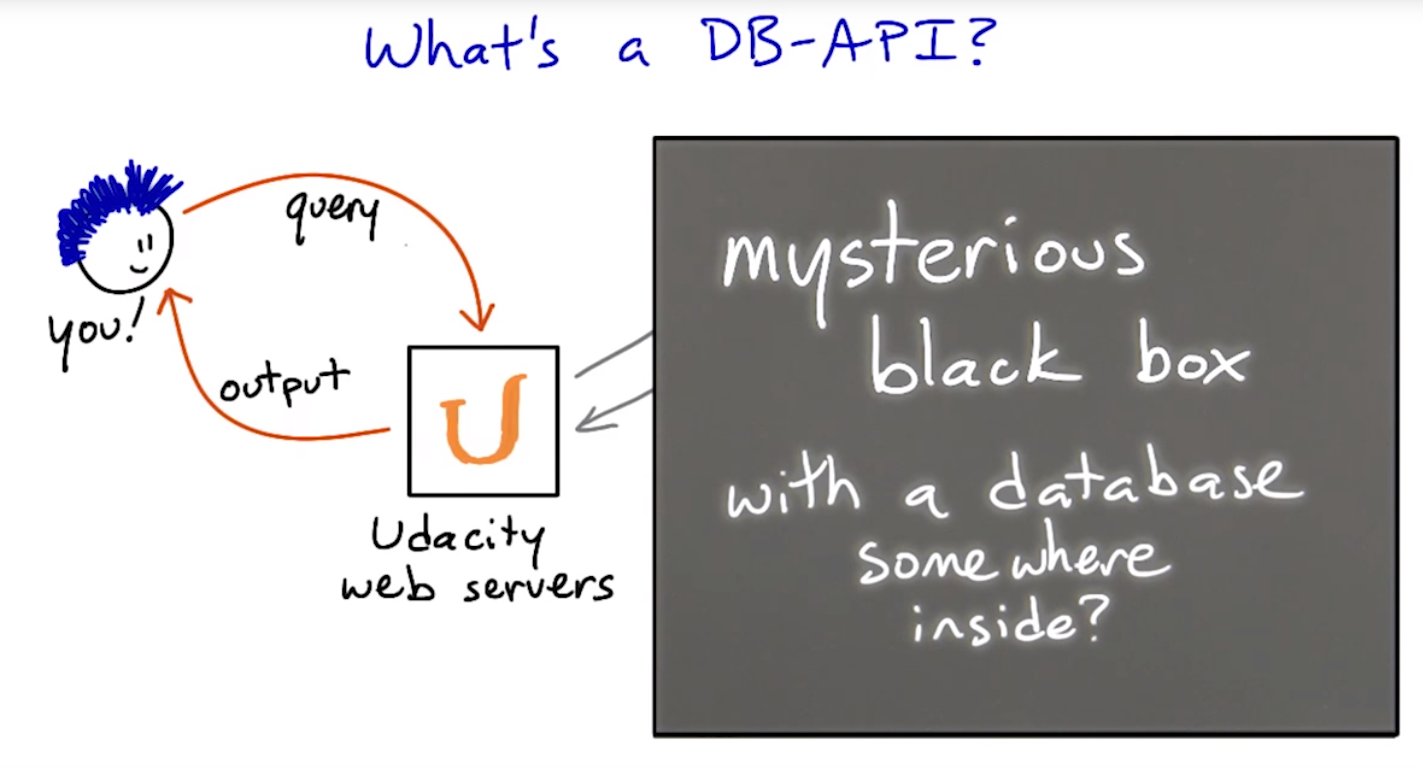 What's a DB-API?
query
you!
output
U
Udacity
web servers
mysterious
black box
with a database
somewhere
inside?